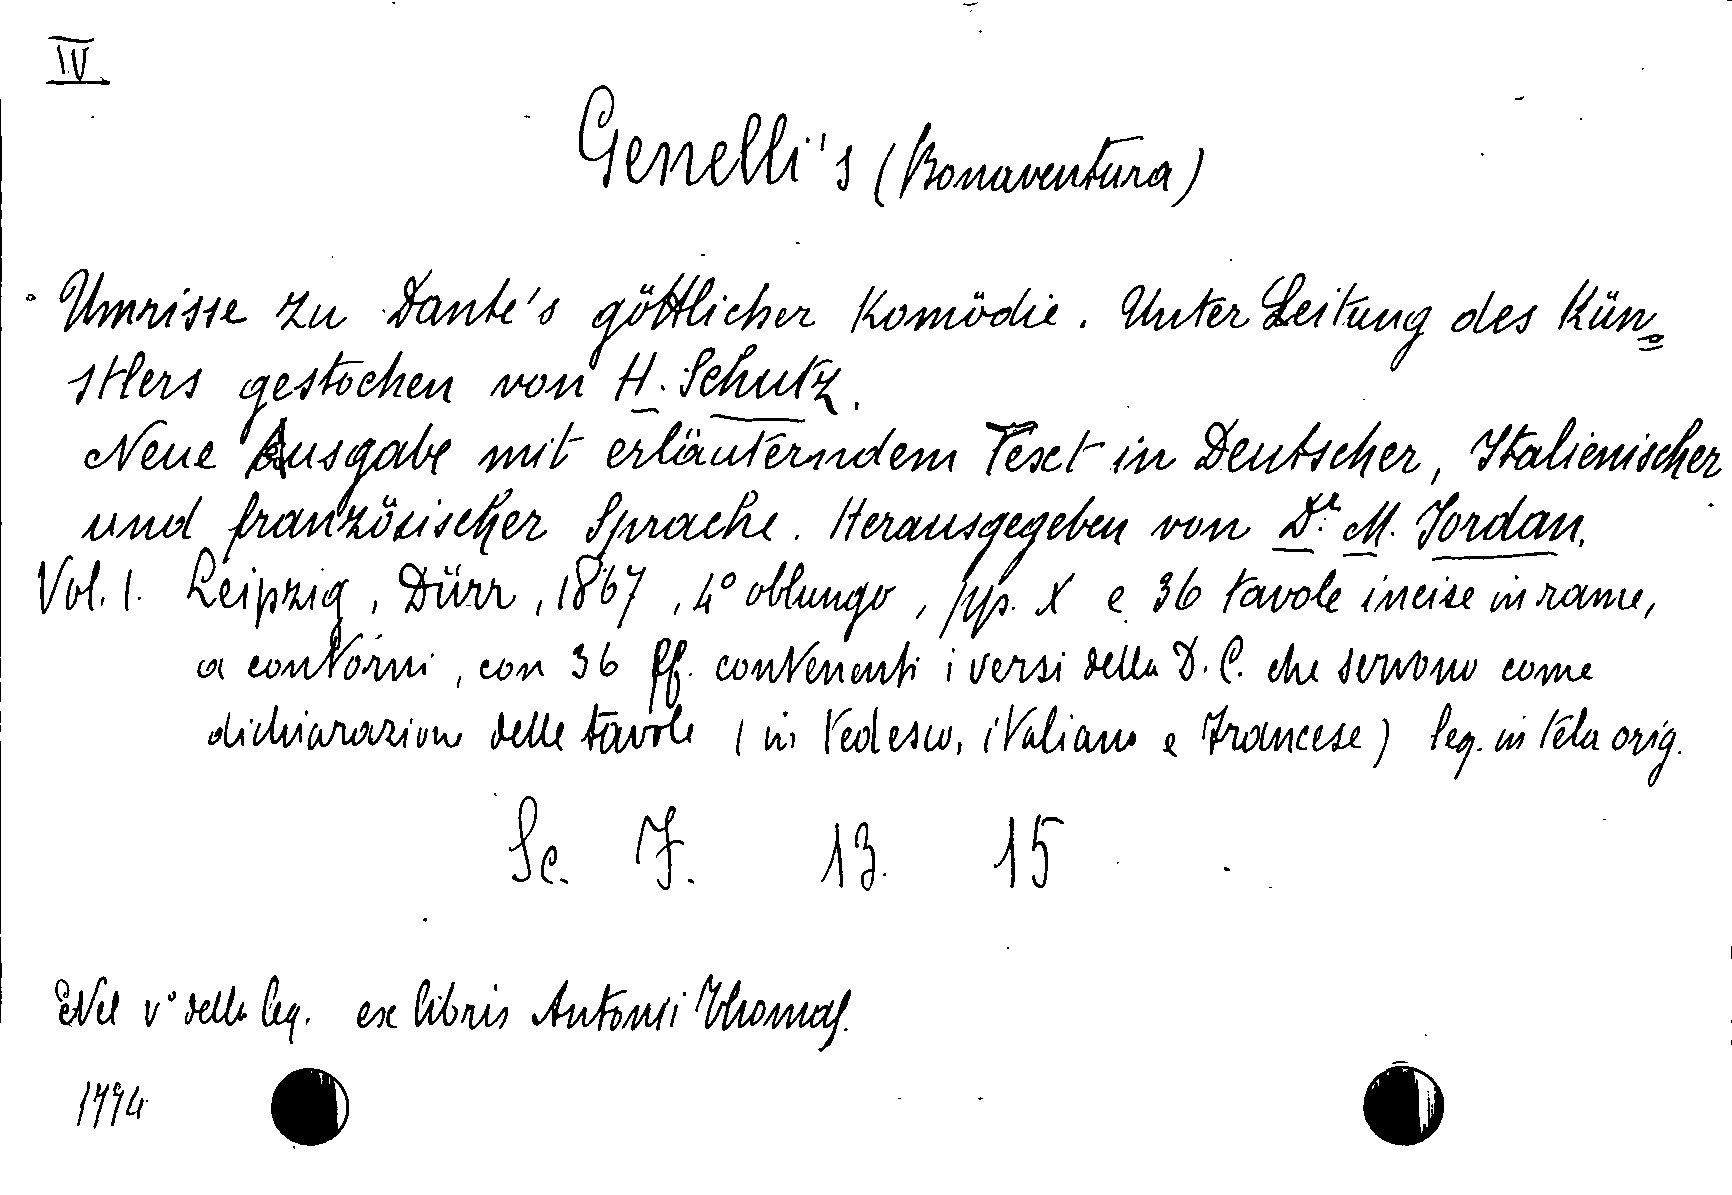 IV
Genelli's (Bonaventura)
Umrisse zu Dante's göttlicher Komödie. Unter Leitung des Kün=
stlers gestochen von H. Schutz.
Neue Ausgabe mit erläuterndem Text in Deutscher, Italienischer
und französischer Sprache. Herausgegeben von Dr. M. Jordan.
Vol. 1. Leipzig, Dürr, 1867, 4° oblungo, pp. X e 36 tavole incise in rame,
a contorni, con 36 ff. contenenti i versi della D. C. che servono come
dichiarazione delle tavole (in tedesco, italiano e francese) leg. in tela orig.
Sc. F. 13. 15
Nel v° della leg. ex libris Antonii Thomas.